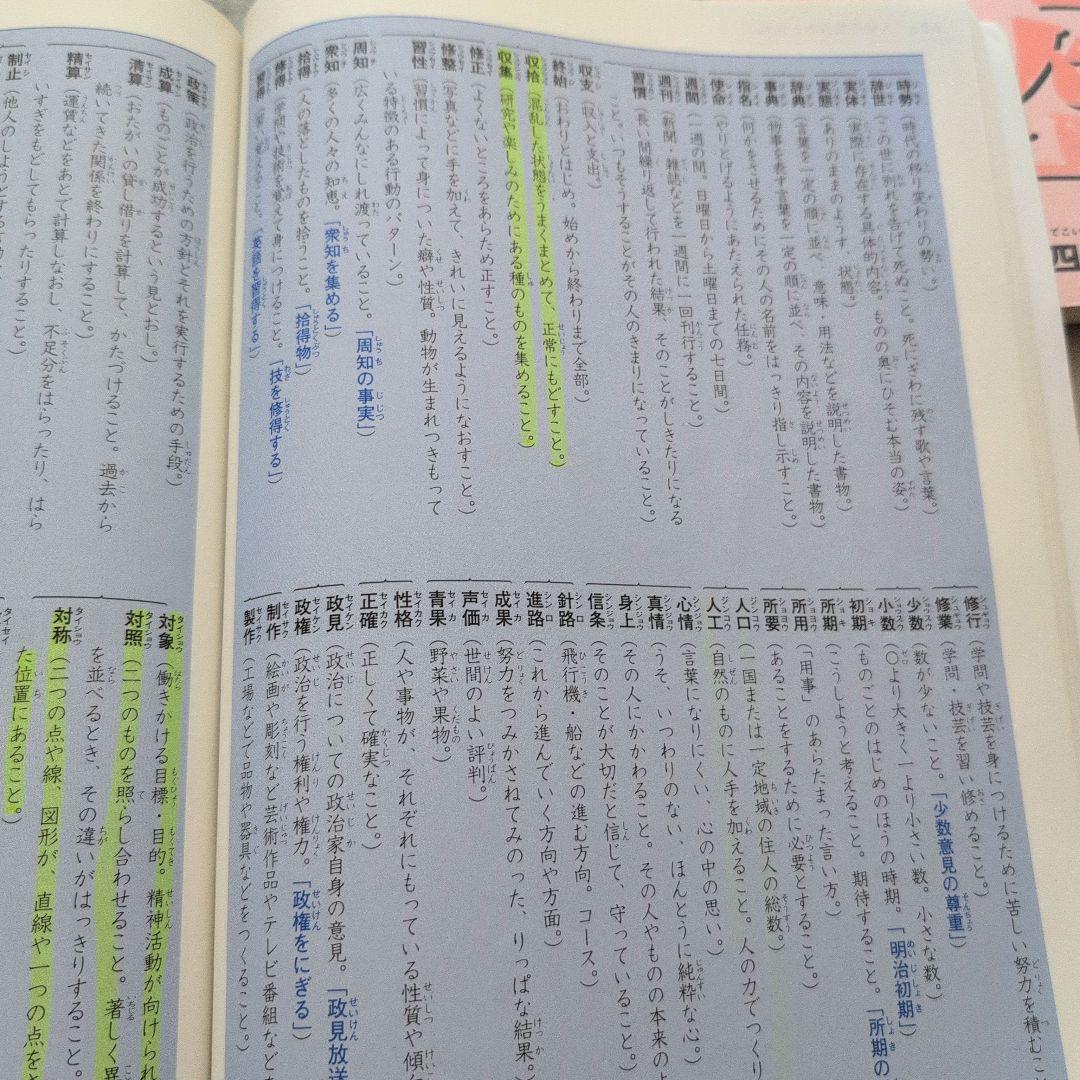 時勢（時代の移り変わりの勢い。）
辞世（この世に別れを告げて死ぬこと。死にぎわに残す歌や言葉。）
実体（実際に存在する具体的内容。ものの奥にひそむ本当の姿。）
実態（ありのままのようす、状態。）
辞典（言葉を一定の順に並べ、意味・用法などを説明した書物。）
事典（物事を表す言葉を一定の順に並べ、その内容を説明した書物。）
指名（何かをさせるためにその人の名前をはっきり指し示すこと。）
使命（やりとげるようにあたえられた任務。）
週間（一週の間。日曜日から土曜日までの七日間。）
週刊（新聞・雑誌などを一週間に一回刊行すること。）
習慣（長い間繰り返して行われた結果、そのことがしきたりになる
こと。いつもそうすることがその人のきまりになっていること。）
収支（収入と支出。）
終始（おわりとはじめ。始めから終わりまで全部。）
収拾（混乱した状態をうまくまとめて、正常にもどすこと。）
収集（研究や楽しみのためにある種のものを集めること。）
修正（よくないところをあらため正すこと。）
修整（写真などに手を加えて、きれいに見えるようになおすこと。）
習性（習慣によって身についた癖や性質。動物が生まれつきもって
いる特徴のある行動のパターン。）
周知（広くみんなにしれ渡っていること。「周知の事実」）
衆知（多くの人々の知恵。「衆知を集める」）
拾得（人の落としたものを拾うこと。「拾得物」）
修得（学問や技術を覚えて身につけること。「技を修得する」）
習得（習い覚えること。「英語を習得する」）
修行（学問や技芸を身につけるために苦しい努力を積むこ
修業（学問・技芸を習い修めること。）
少数（数が少ないこと。「少数意見の尊重」）
小数（〇より大きく一より小さい数。小さな数。）
初期（ものごとのはじめのほうの時期。「明治初期」）
所期（こうしようと考えること。期待すること。「所期の
所用（「用事」のあらたまった言い方。）
所要（あることをするために必要とすること。）
人口（一国または一定地域の住人の総数。）
人工（自然のものに人手を加えること。人の力でつくり
心情（言葉になりにくい、心の中の思い。）
真情（うそ、いつわりのない、ほんとうに純粋な心。）
身上（その人にかかわること。その人やもの の本来の
信条（そのことが大切だと信じて、守っていること。）
針路（飛行機・船などの進む方向。コース。）
進路（これから進んでいく方向や方面。）
成果（努力をつみかさねてみのった、りっぱな結果。）
声価（世間のよい評判。）
青果（野菜や果物。）
性格（人や事物が、それぞれにもっている性質や傾
正確（正しくて確実なこと。）
政見（政治についての政治家自身の意見。「政見放送
政権（政治を行う権利や権力。「政権をにぎる」）
制作（絵画や彫刻など芸術作品やテレビ番組など
製作（工場などで品物や器具などをつくること。）
政策（政治を行うための方針とそれを実行するための手段。）
成算（ものごとが成功するという見とおし。）
清算（おたがいの貸し借りを計算して、かたづけること。過去から
続いてきた関係を終わりにすること。）
精算（運賃などをあとで計算しなおし、不足分をはらったり、はら
いすぎをもどしてもらったりすること。）
制止（他人のしようとする
対象（働きかける目標・目的。精神活動が向けられ
対照（二つのものを照らし合わせること。著しく異
を並べるとき、その違いがはっきりすること。
対称（二つの点や線、図形が、直線や一つの点を
た位置にあること。）
四